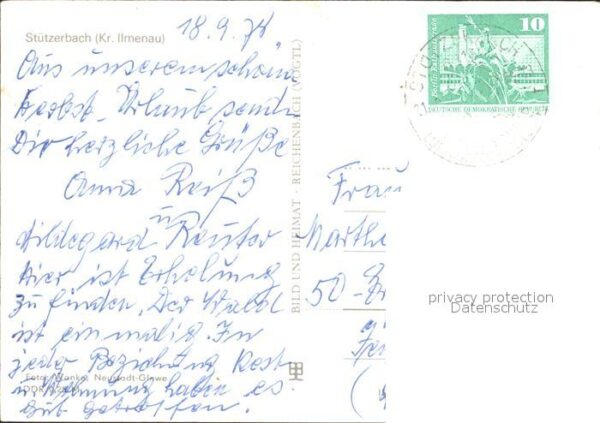 Stützerbach (Kr. Ilmenau)
18.9.78
Aus unserem schönen
Herbst-Urlaub senden
Dir herzliche Grüße
Anna Reiß
u.
Hildegard Reuter
Hier ist Erholung
zu finden. Der Wald
ist einmalig. In
jeder Beziehung Kost
u. Wohnung haben es
gut getroffen.
Foto: Wonke, Neustadt-Glewe
DDR
BILD UND HEIMAT · REICHENBACH (VOGTL)
10
DEUTSCHE DEMOKRATISCHE REPUBLIK
Frau
Marthe
50 -
privacy protection
Datenschutz